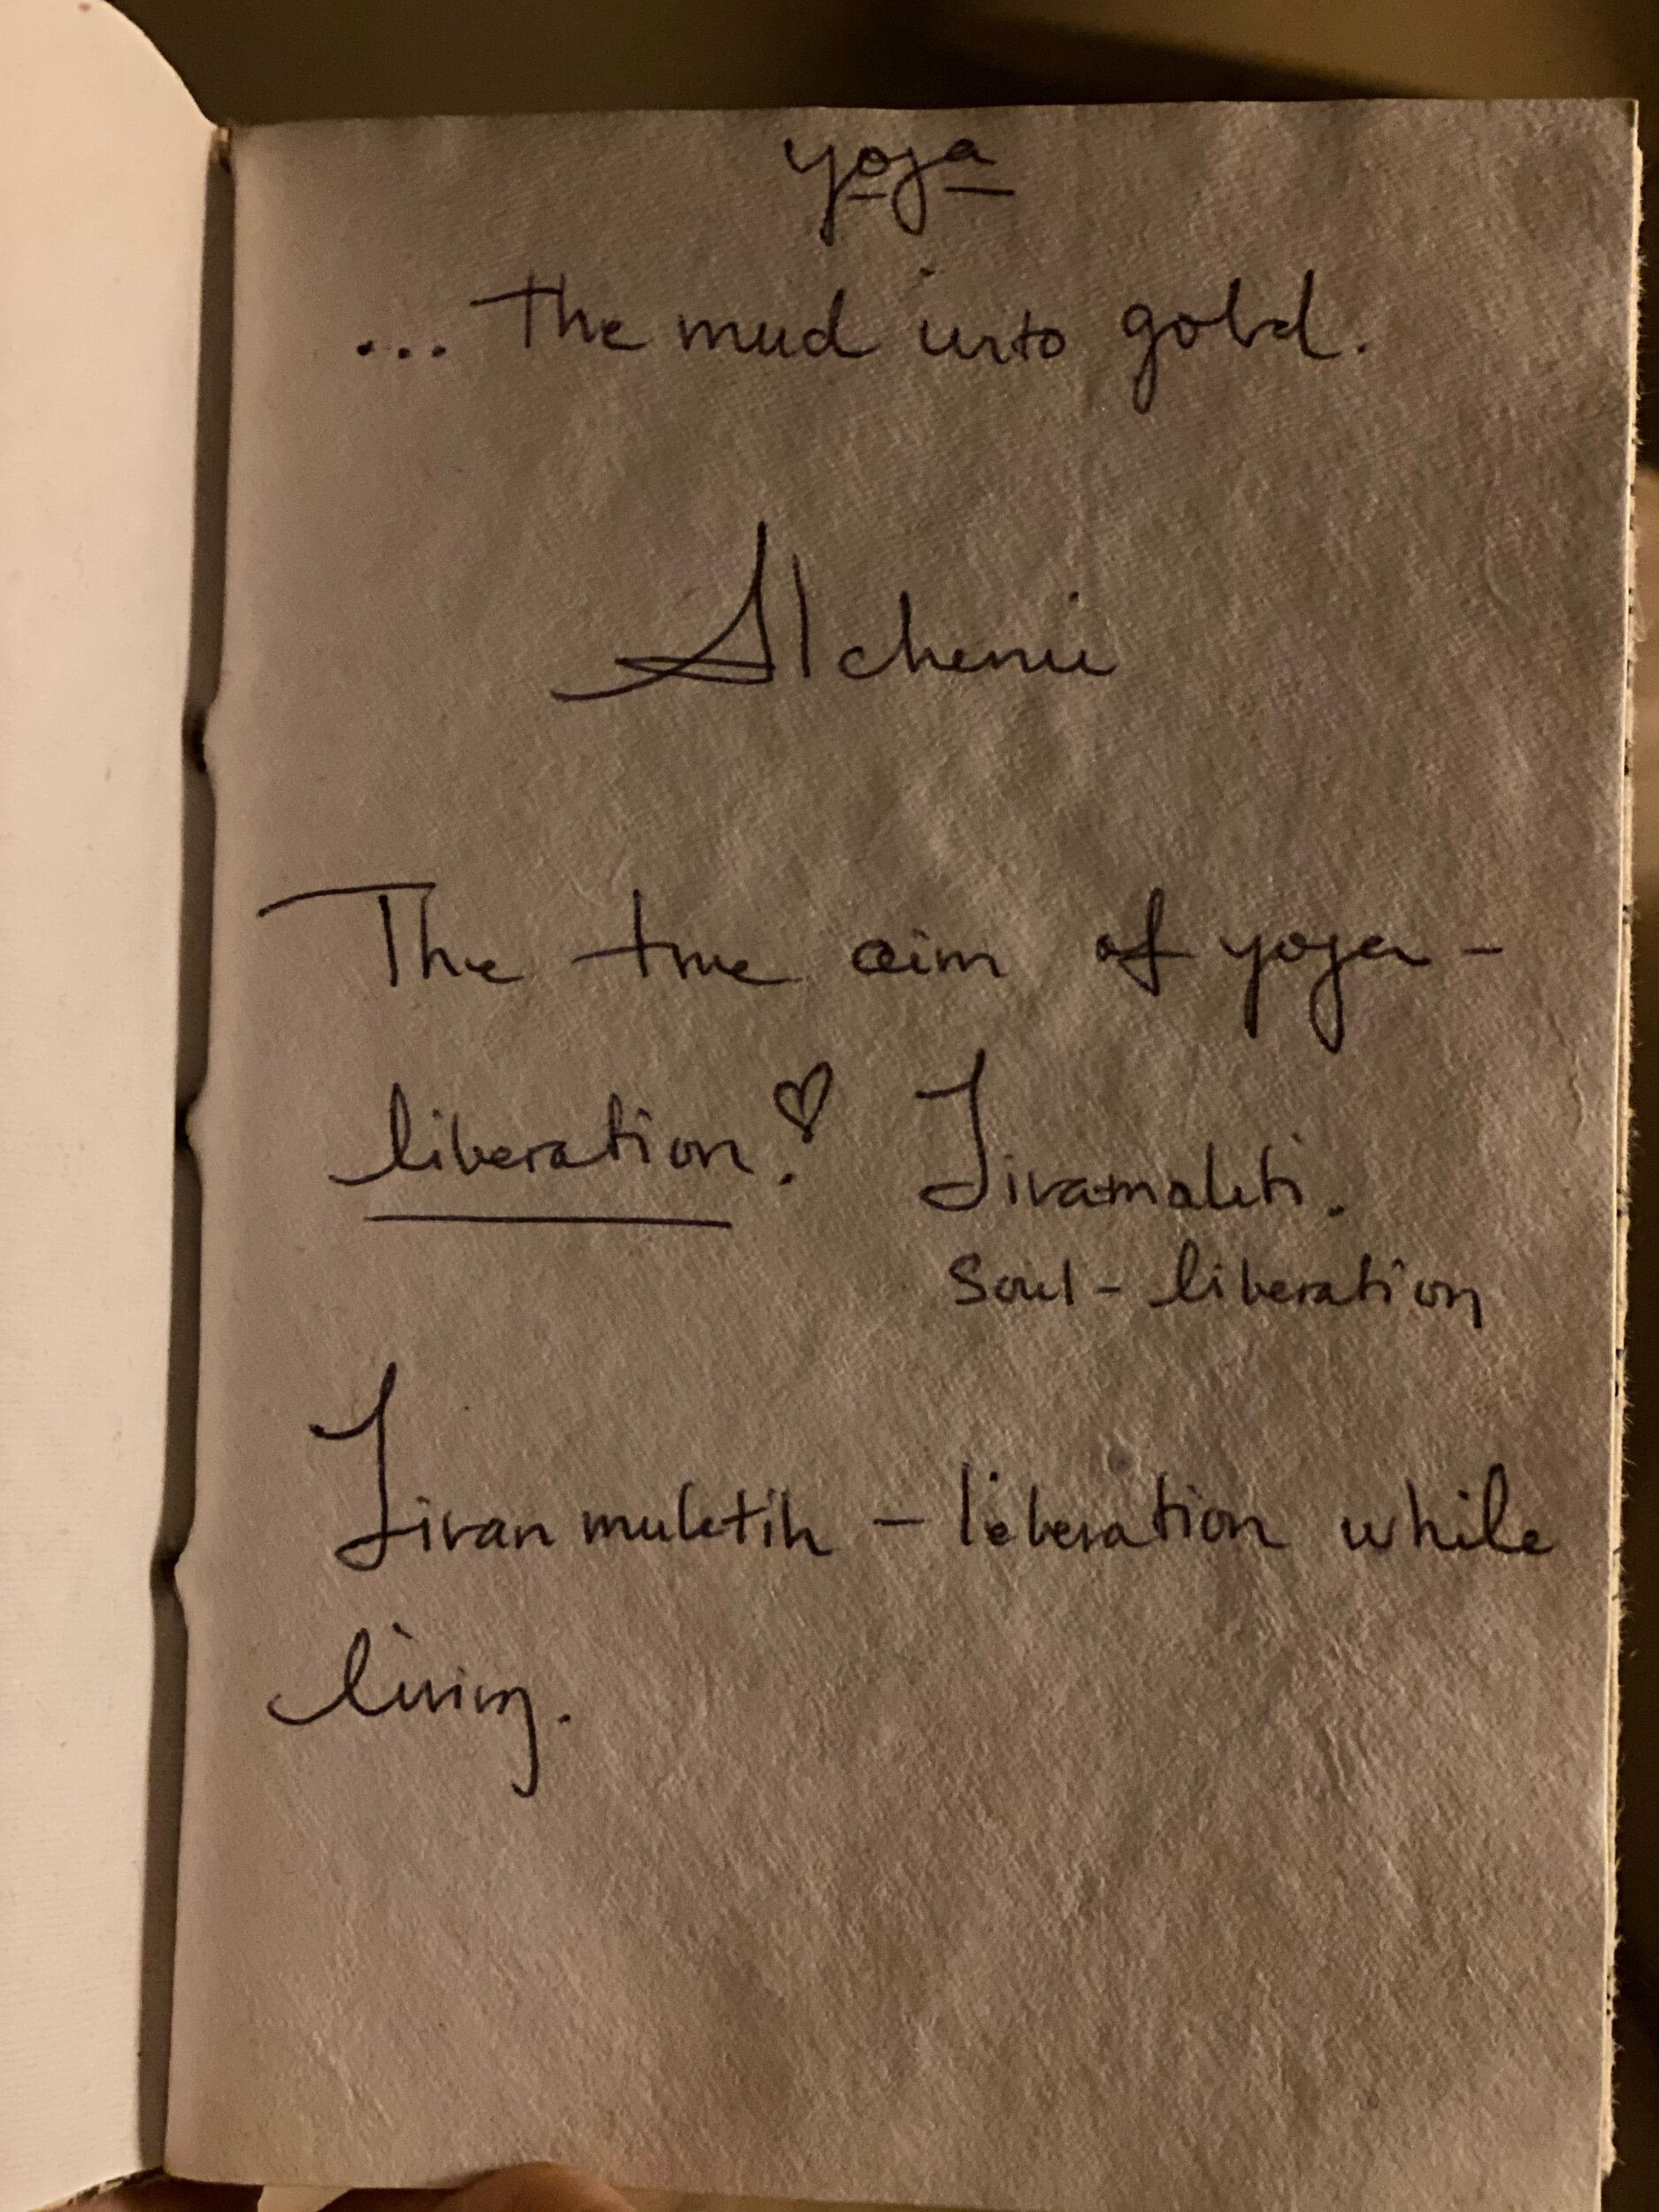 yoga
... The mud into gold.
Alchemie
The true aim of yoga -
liberation. Jivamukti.
Soul - liberation
Jivanmuktih - liberation while
living.